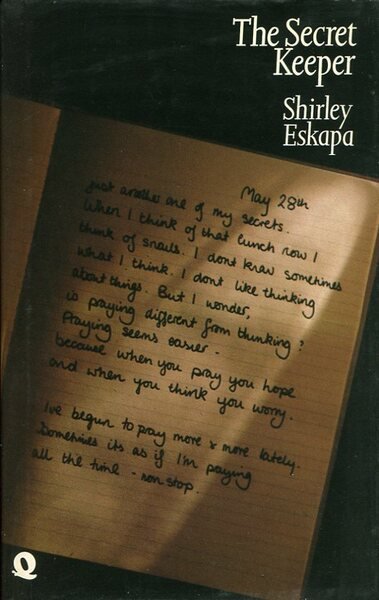 The Secret
Keeper
Shirley
Eskapa
May 28th
just another one of my secrets.
When I think of that lunch now I
think of snails. I dont know sometimes
what I think. I dont like thinking
about things. But I wonder,
is praying different from thinking?
Praying seems easier -
because when you pray you hope
and when you think you worry.
I've begun to pray more & more lately.
Sometimes its as if I'm praying
all the time - non stop.
Q